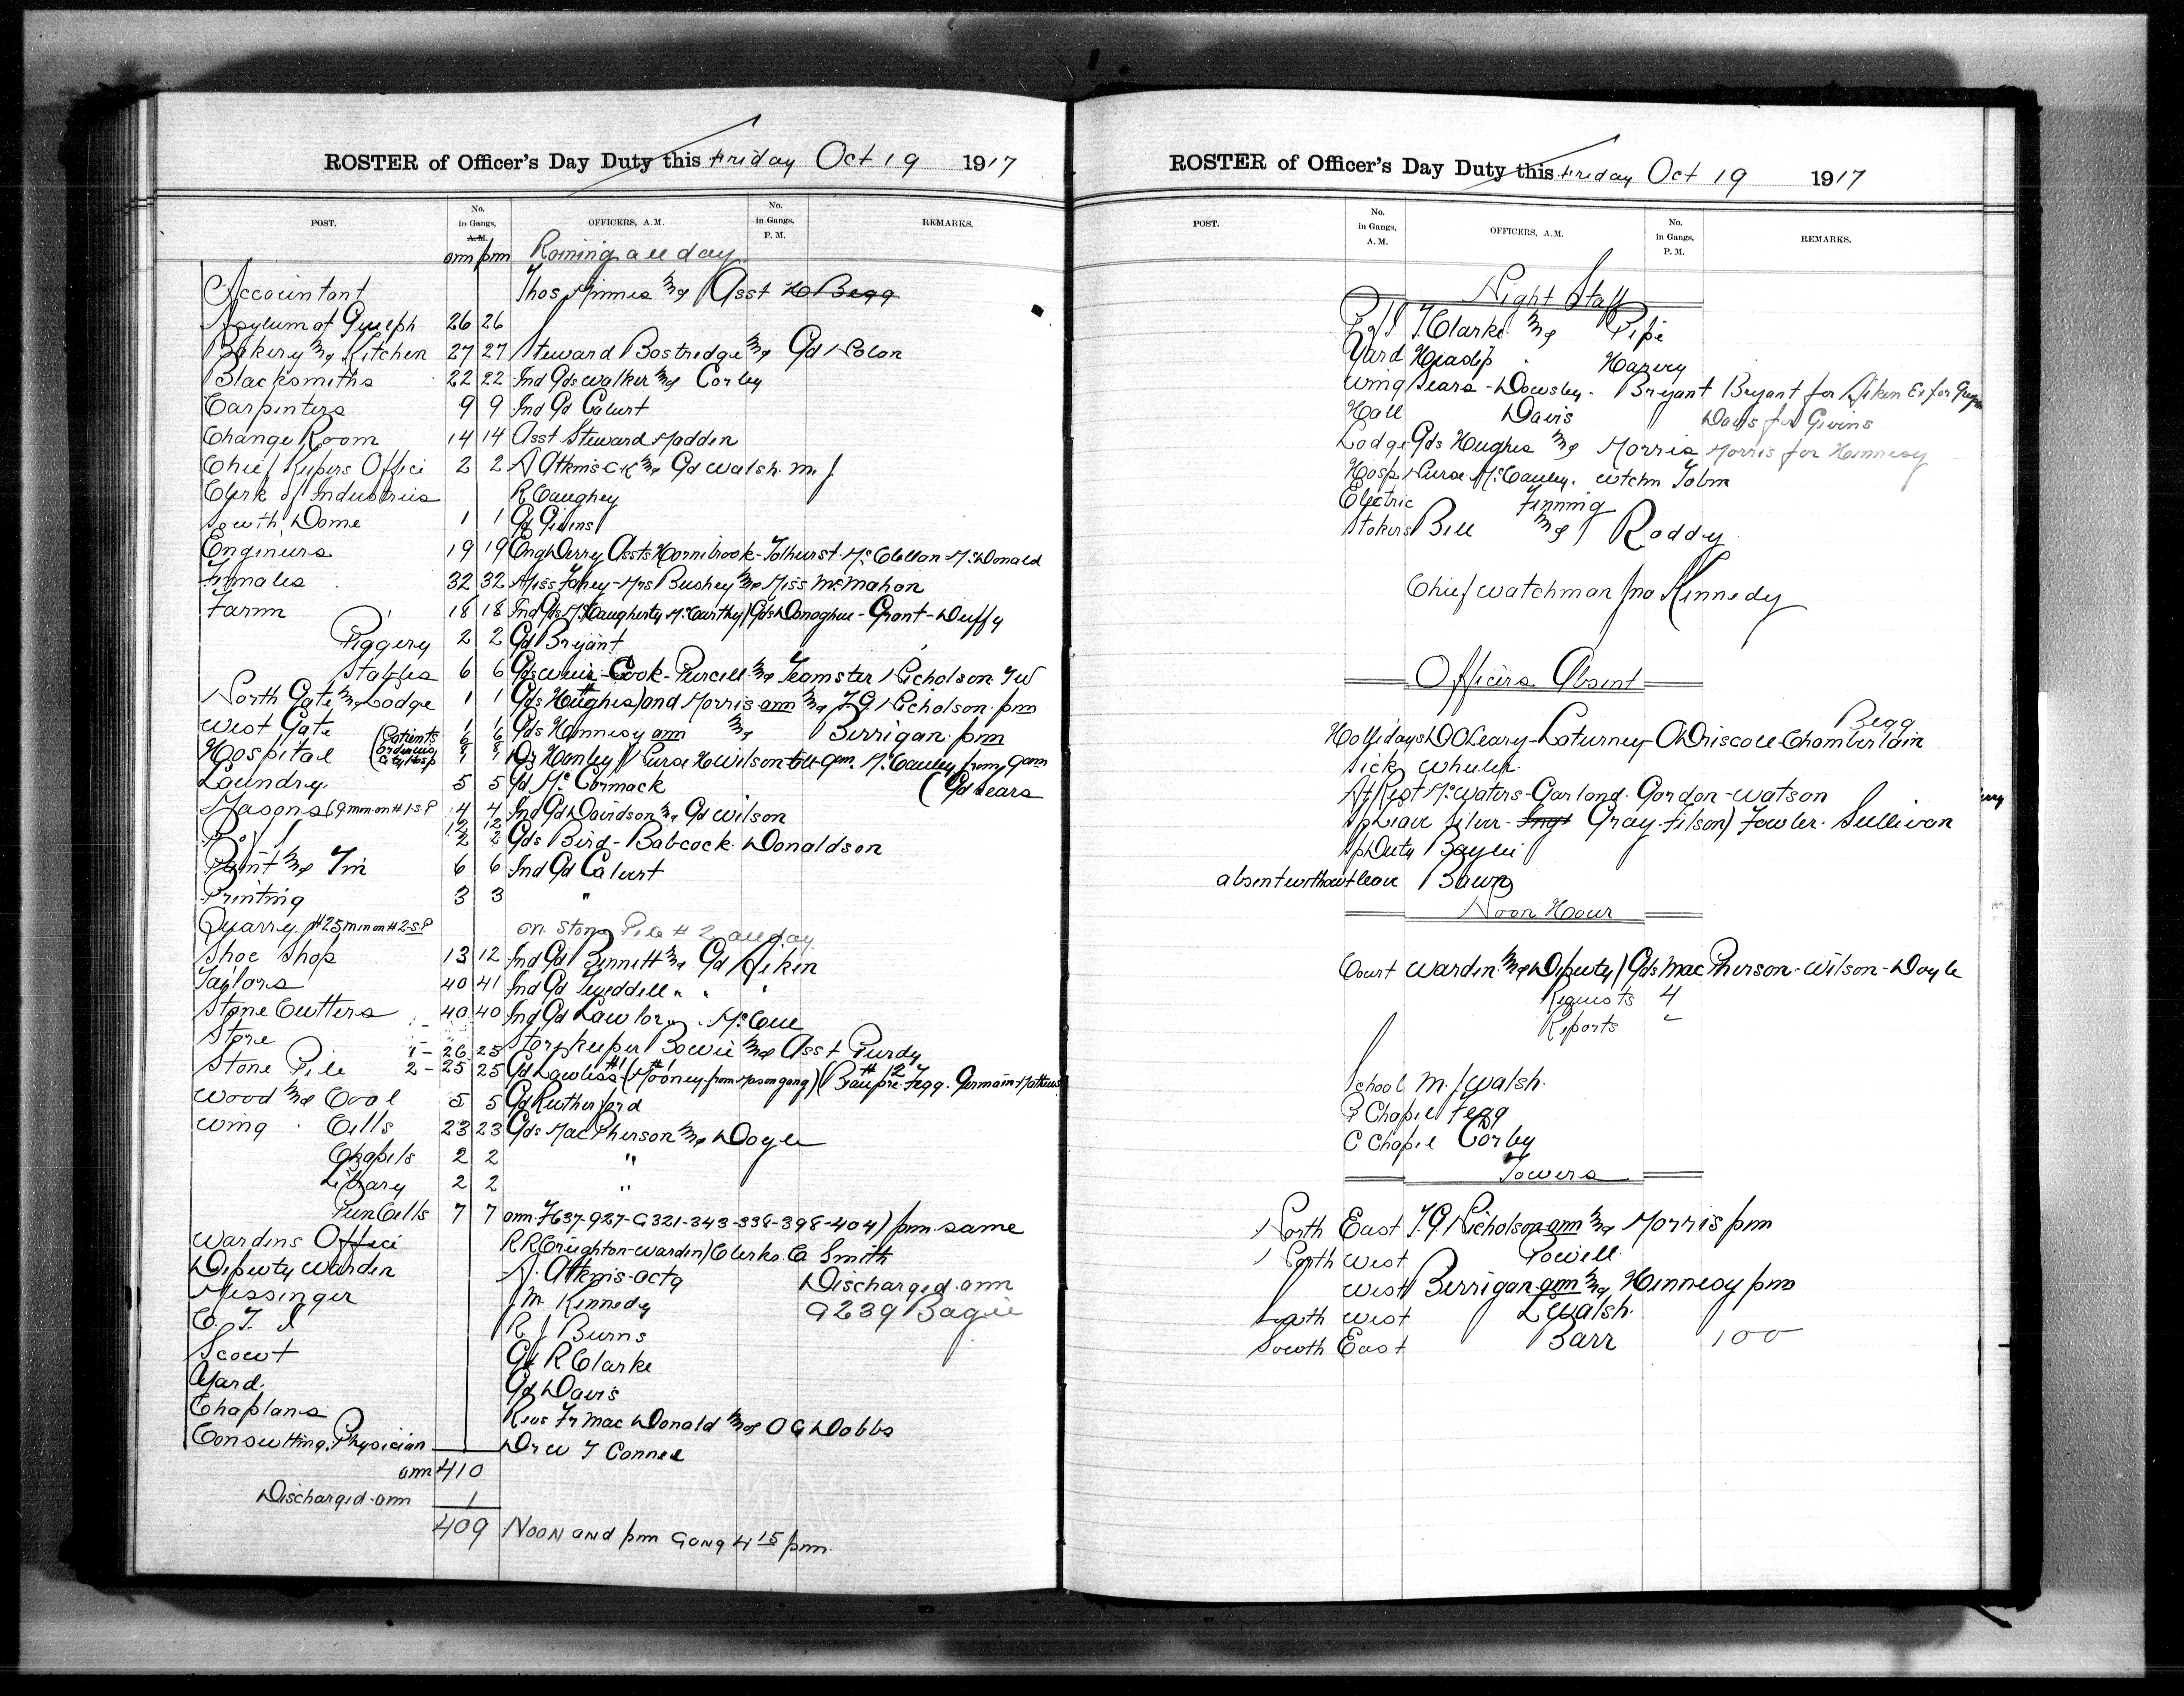 ROSTER of Officer's Day Duty this Friday Oct 19 1917
POST. No. in Gangs, A.M. OFFICERS, A.M. No. in Gangs, P. M. REMARKS.
am pm Raining all day
Accountant Thos Minnes & Asst H Begg
Asylum at Guelph 26 26
Bakery & Kitchen 27 27 Steward Bostredge & Gd Nolan
Blacksmiths 22 22 Ind Gds Walker & Corby
Carpenters 9 9 Ind Gd Calvert
Change Room 14 14 Asst Steward Madden
Chief Kepers Office 2 2 A Atkins CK & Gd Walsh. M. J
Clerk of Industries R Caughey
South Dome 1 1 Gd Givens
Engineers 19 19 Eng Derry Assts Hornibrook-Tolhurst-McClellan-McDonald
Females 32 32 Miss Fahey-Mrs Bushey & Miss McMahon
Farm 18 18 Ind Gds McCaugherty McCarthy) Gds Donoghue-Grant-Duffy
Piggery 2 2 Gd Bryant
Stables 6 6 Gds Weir-Cook-Purcell & Teamster Nicholson TW
North Gate & Lodge 1 1 Gds Hughes) and Morris am & T.G. Nicholson pm
West Gate 1 1 Gds Hennesy am & Berrigan pm
Hospital (Patients 6 6 Orderlies 8 8 Dr Hanley) Nurse H Wilson till 9pm. McCauley from 9pm
Laundry 5 5 Gd McCormack (Gd Sears
Masons (9 men on #1 S.P 4 4 Ind Gd Davidson & Gd Wilson
12 12
2 2 Gds Bird-Babcock. Donaldson
Paint & Tin 6 6 Ind Gd Calvert
Printing 3 3 "
Quarry #25 men on #2 S.P on Stone Pile #2 all day
Shoe Shop 13 12 Ind Gd Bennett & Gd Aiken
Tailors 40 41 Ind Gd Tweddell " " "
Stone Cutters 40 40 Ind Gd Lawlor " . McCue
Store Storekeeper Bowie & Asst Purdy
1- 26 25
Stone Pile 2- 25 25 Gd Lawless #1 (Mooney from Mason gang) (Beaupre #2 Fegg. Germain-Mathews
Wood & Coal 5 5 Gd Rutherford
Wing Cells 23 23 Gds MacPherson & Doyle
Chapels 2 2 "
Library 2 2 "
Pun Cells 7 7 am F637-927-G321-343-338-398-404) pm same
Wardens Office R R Creighton-Warden) Clerks. G Smith
Deputy Warden A. Atkins-actg Discharged am
Messenger J M Kennedy G239 Bagie
C. T. I R J Burns
Scout Gd R Clarke
Yard Gd Davis
Chaplans Revs Fr MacDonald & O G Dobbs
Consulting Physician Dr W T Connel
am 410
Discharged am 1
409 Noon and pm Gang 4 15 pm.
ROSTER of Officer's Day Duty this Friday Oct 19 1917
POST. No. in Gangs, A. M. OFFICERS, A.M. No. in Gangs, P. M. REMARKS.
Night Staff
T. Clarke & Pipe
Yard Heaslip " Harvey
Wing Sears-Dowsley-Bryant Bryant for Aiken Ex for
Hall Davis Davis for Givins
Lodge Gds Hughes & Morris Morris for Hennesy
Hosp Nurse McCauley. Wtchn Tobin
Electric Finning
Stokers Bell & Roddy
Chief Watchman Jno Kennedy
Officers Absent
Begg
Hollidays D OLeary-Laturney-ODriscoll-Chamberlain
Sick Wheler
At Rest McWaters-Garland. Gordon-Watson
Sp Leave Silver- Gray-Filson) Fowler. Sullivan
Sp Duty Baylie
absent without leave Bawn
Noon Hour
Court Warden & Deputy) Gds MacPherson-Wilson-Doyle
Requists 4
Reports
School M. J Walsh.
P Chapel Fegg
C Chapel Corby
Towers
North East T.G. Nicholson am & Morris pm
North West Powell.
West Berrigan am & Hennesy pm
South West L Walsh.
South East Barr 100